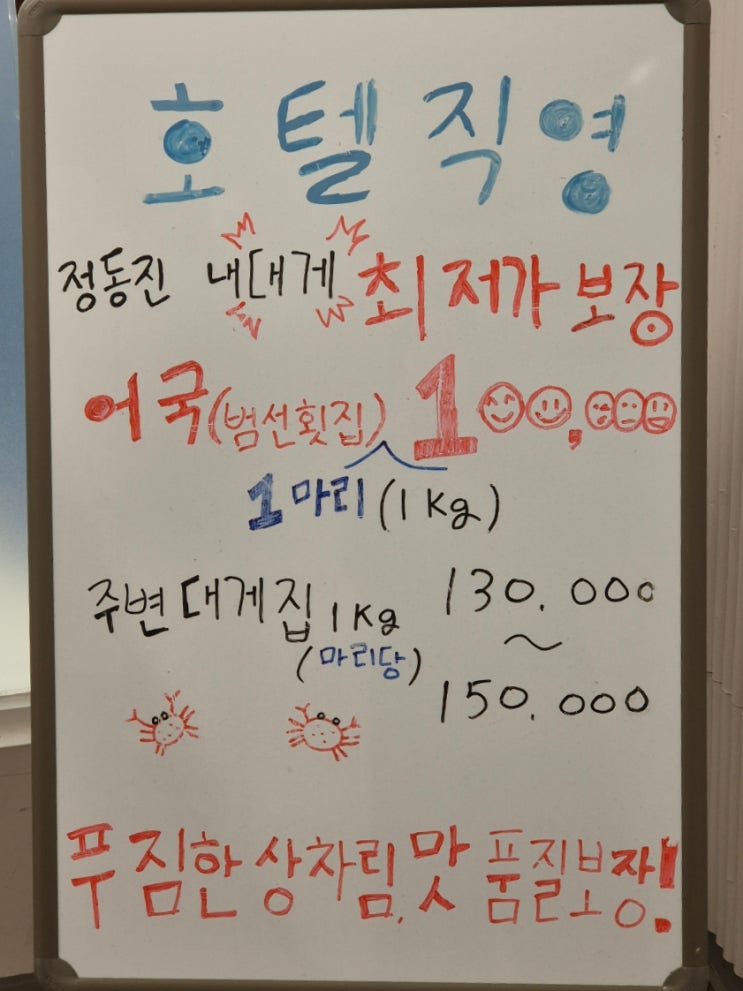 호텔직영
정동진 내대게 최저가 보장
어국(범선횟집) 100,000
1마리(1Kg)
주변대게집 1Kg 130.000
(마리당) ~
150.000
푸짐한상차림, 맛 품질보장!